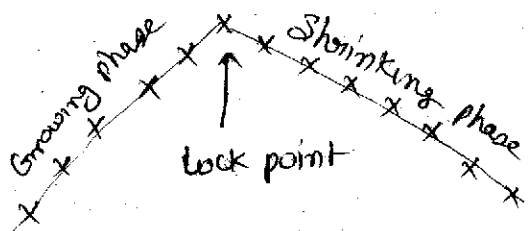 Growing phase
Shrinking phase
lock point